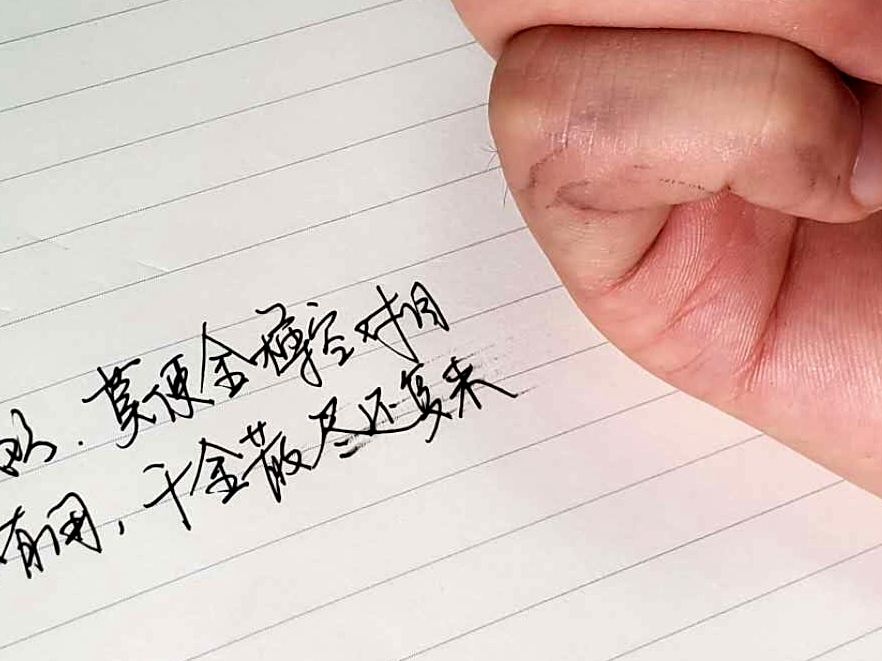 欢，莫使金樽空对月
有用，千金散尽还复来